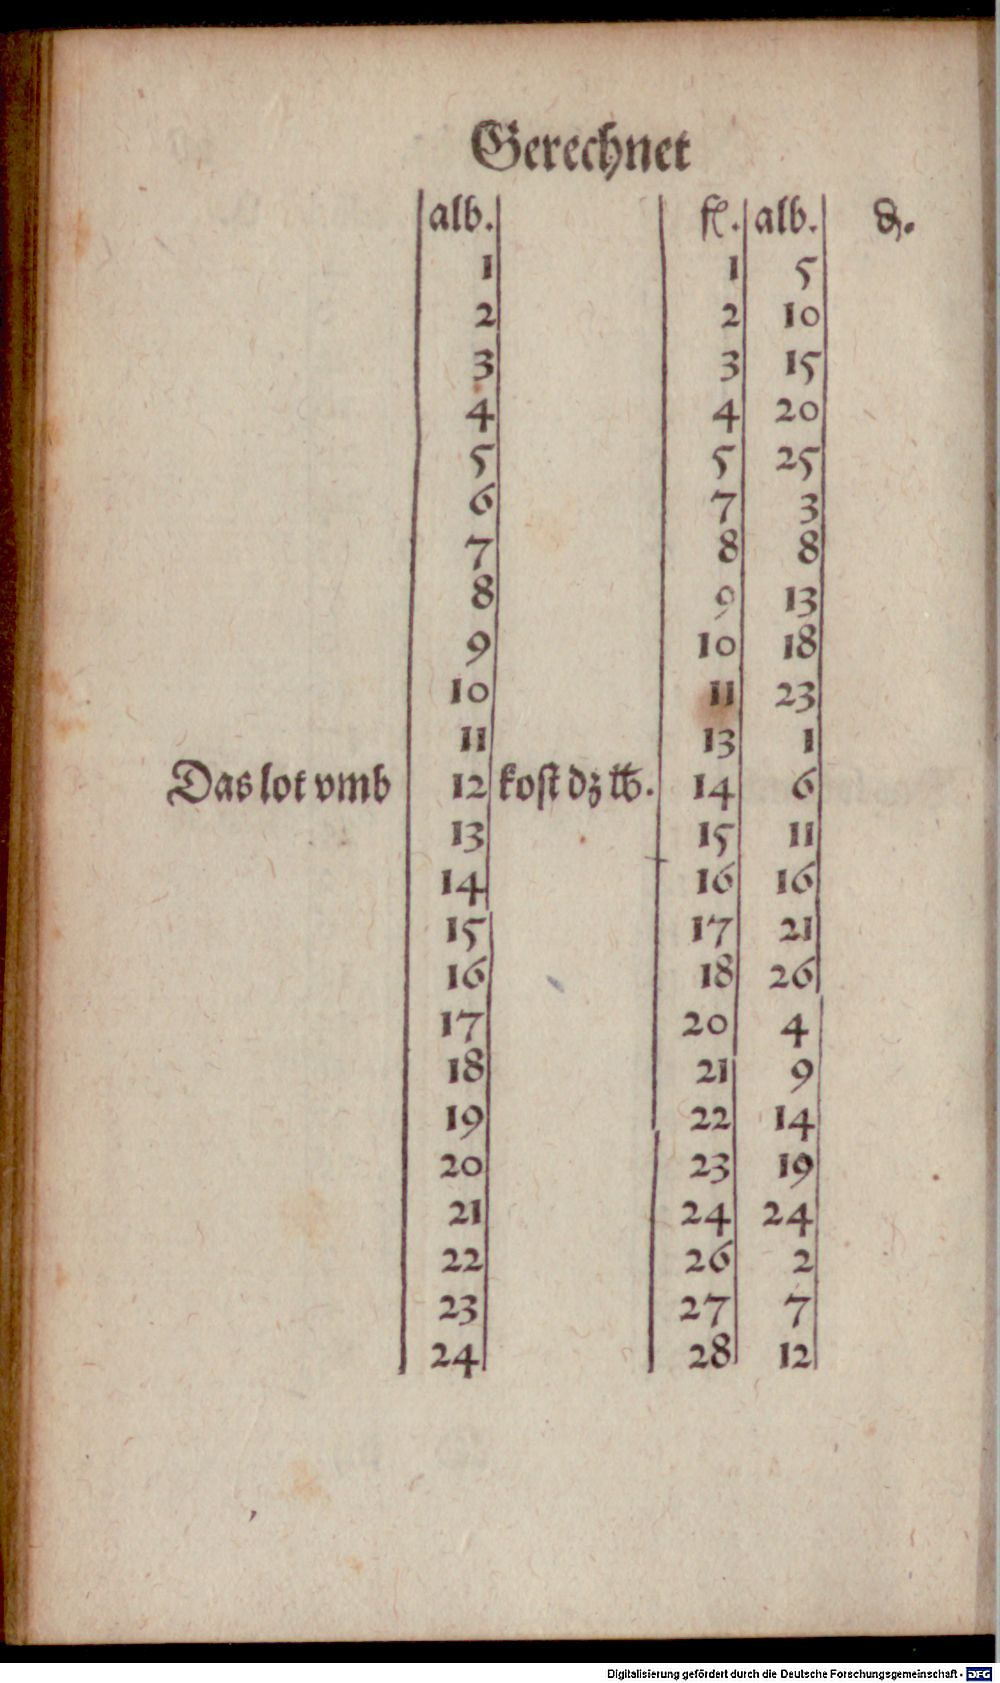 Gerechnet
alb. fl. alb. ₰.
1 1 5
2 2 10
3 3 15
4 4 20
5 5 25
6 7 3
7 8 8
8 9 13
9 10 18
10 11 23
11 13 1
Das lot vmb 12 kost dz ℔. 14 6
13 15 11
14 16 16
15 17 21
16 18 26
17 20 4
18 21 9
19 22 14
20 23 19
21 24 24
22 26 2
23 27 7
24 28 12
Digitalisierung gefördert durch die Deutsche Forschungsgemeinschaft - DFG